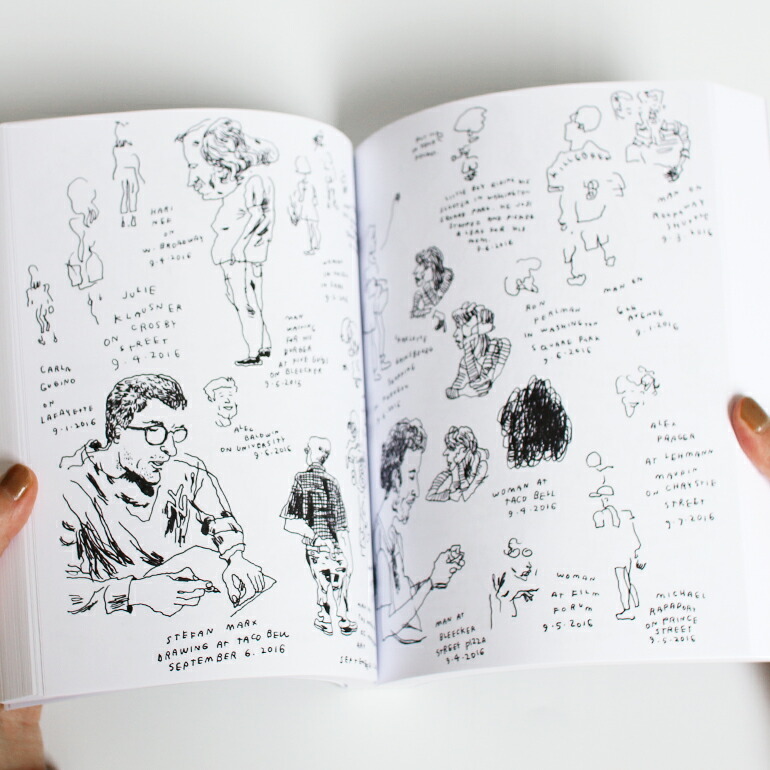 HARI
NEF
ON
W. BROADWAY
9.4.2016
JULIE
KLAUSNER
ON CROSBY
STREET
9.4.2016
CARLA
GUGINO
ON
LAFAYETTE
9.1.2016
MAN
WAITING
FOR HIS
BURGER
AT
ON BLEECKER
9.6.2016
ALEC
BALDWIN
ON UNIVERSITY
9.6.2016
STEFAN MARX
DRAWING AT TACO BELL
SEPTEMBER 6. 2016
LITTLE BOY RIDING HIS
SCOOTER IN WASHINGTON
SQUARE PARK. HE JUST
STOPPED AND PICKED
A LEAF FOR HIS
MOM.
9.6.2016
KILLGORE
MAN ON
BROADWAY
9.3.2016
RON
PERLMAN
IN WASHINGTON
SQUARE PARK
9.6.2016
MAN ON
6TH
AVENUE
9.1.2016
WOMAN AT
TACO BELL
9.4.2016
ALEX
PRAGER
AT LEHMANN
MAUPIN
ON CHRYSTIE
STREET
9.7.2016
MAN AT
BLEECKER
STREET PIZZA
9.4.2016
WOMAN
AT FILM
FORUM
9.5.2016
MICHAEL
RAPAPORT
ON PRINCE
STREET
9.5.2016